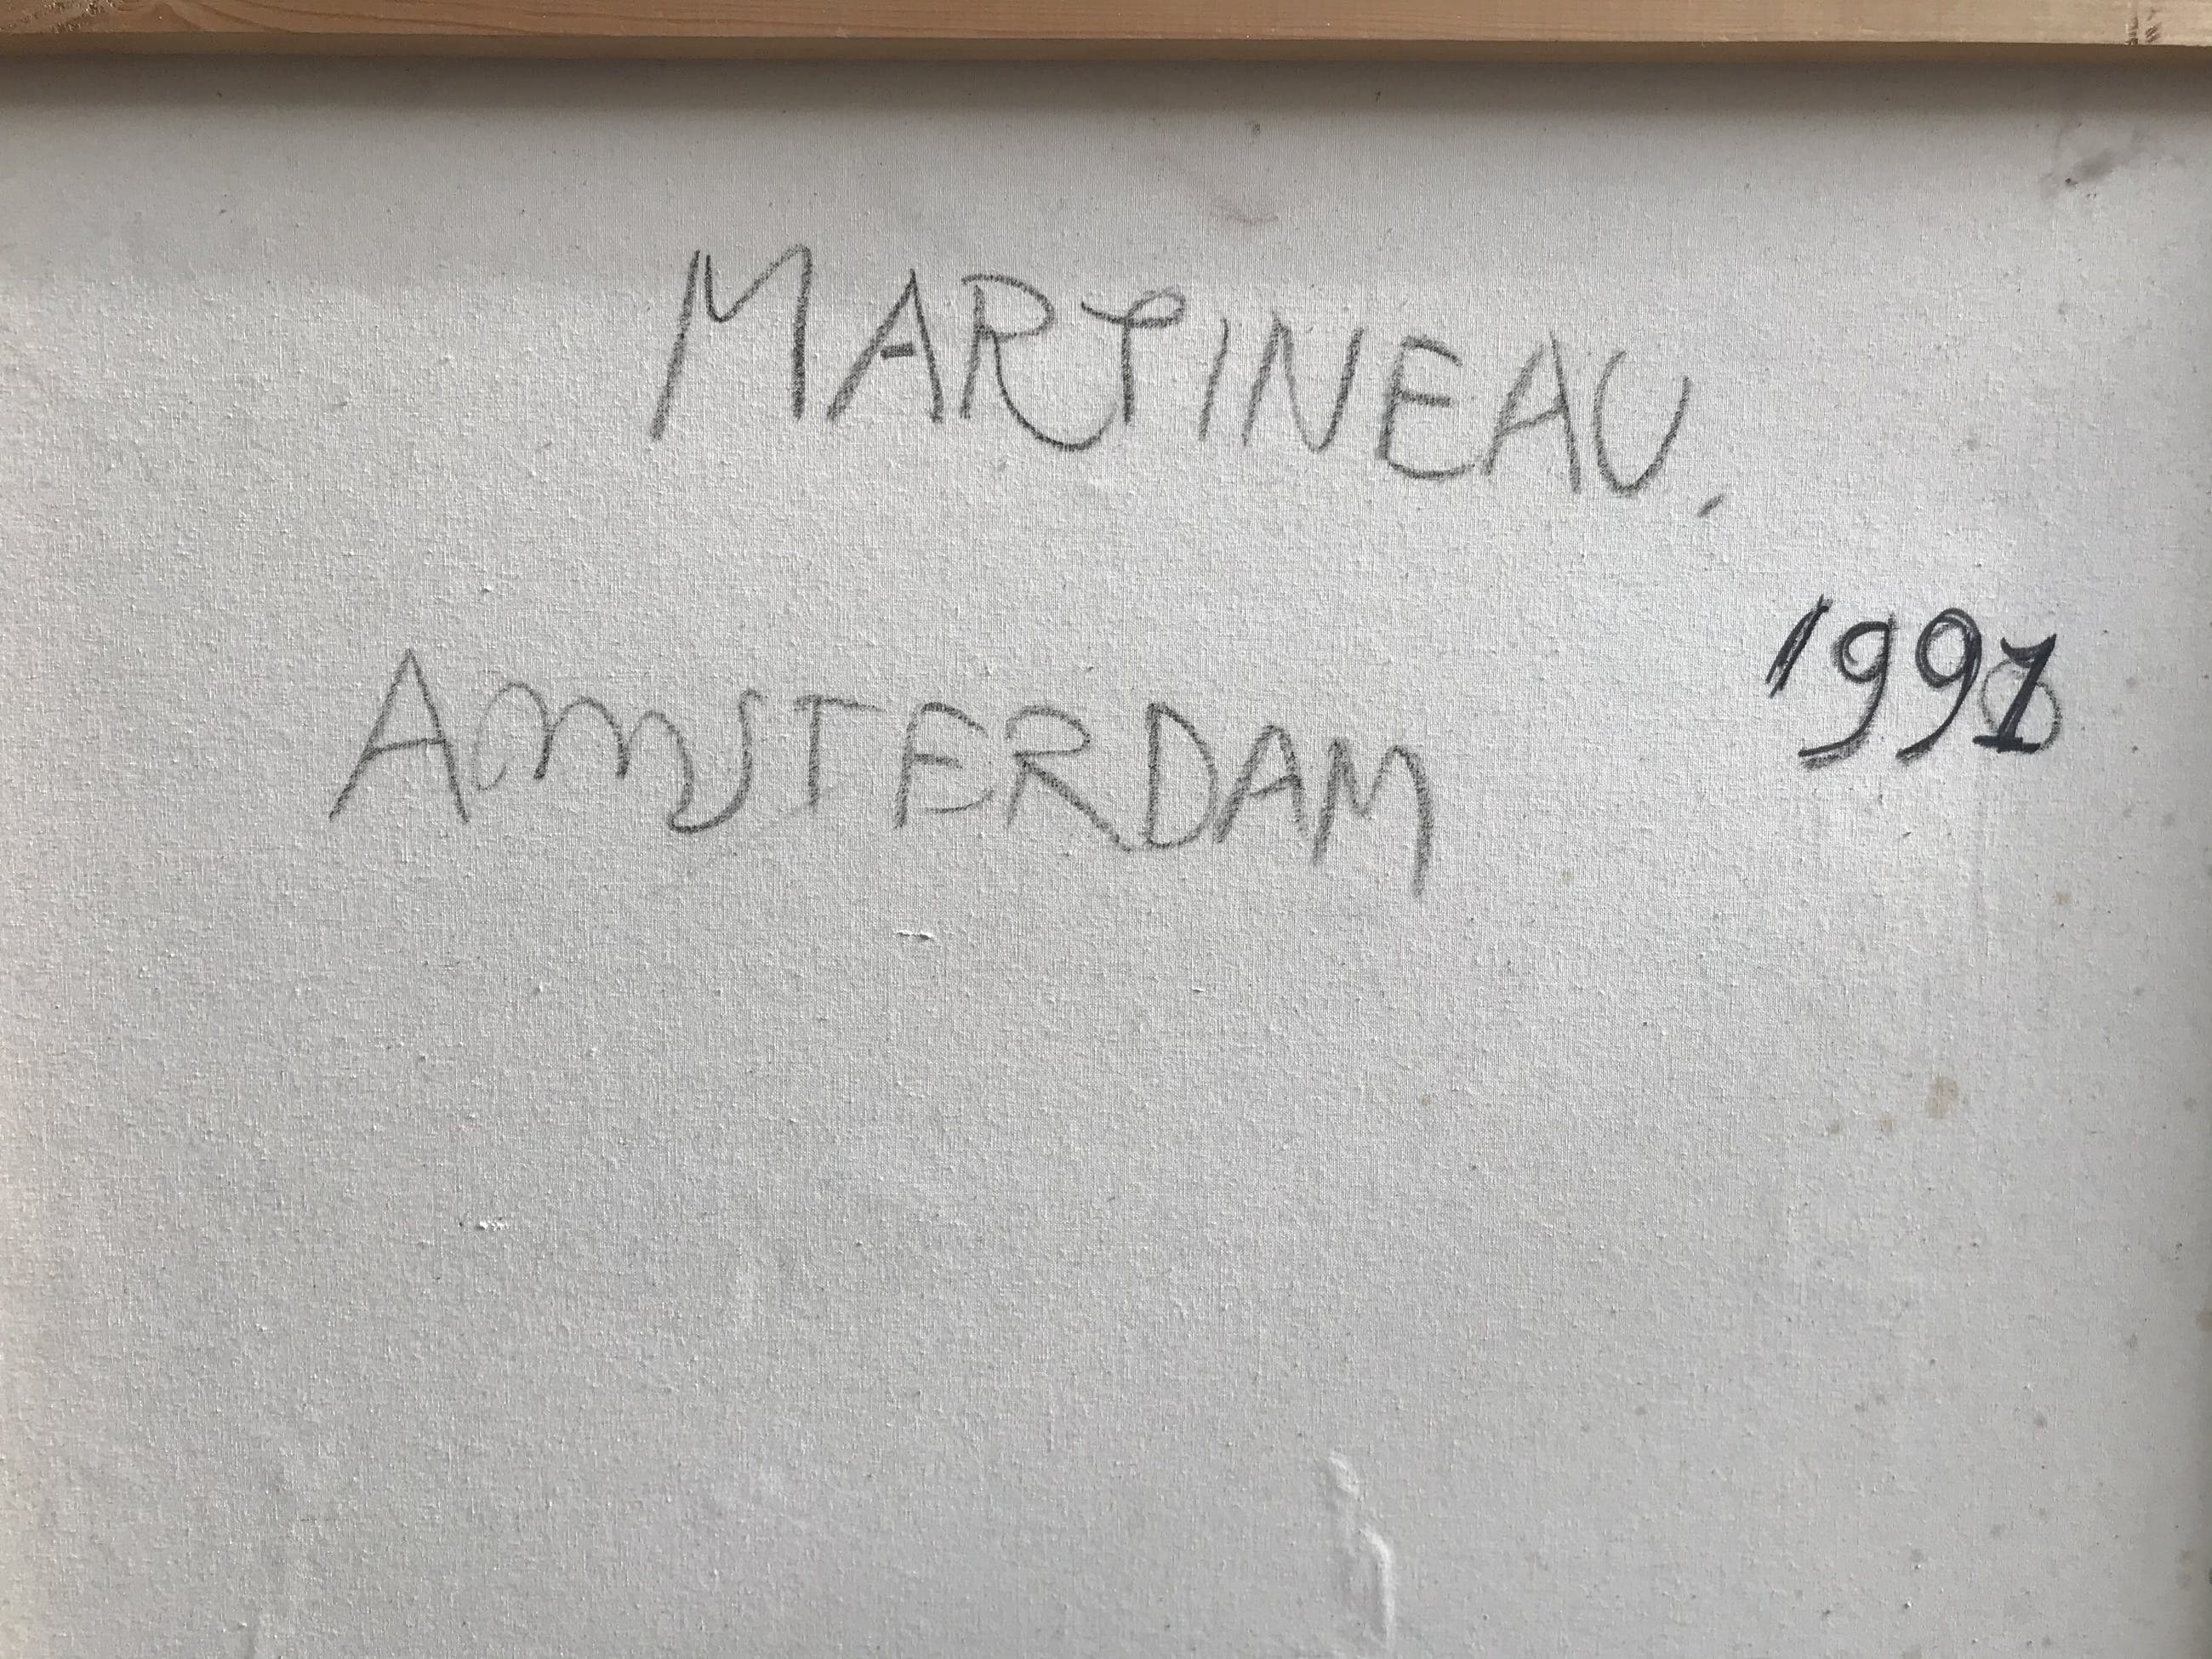 MARTINEAU.
1991
AMSTERDAM